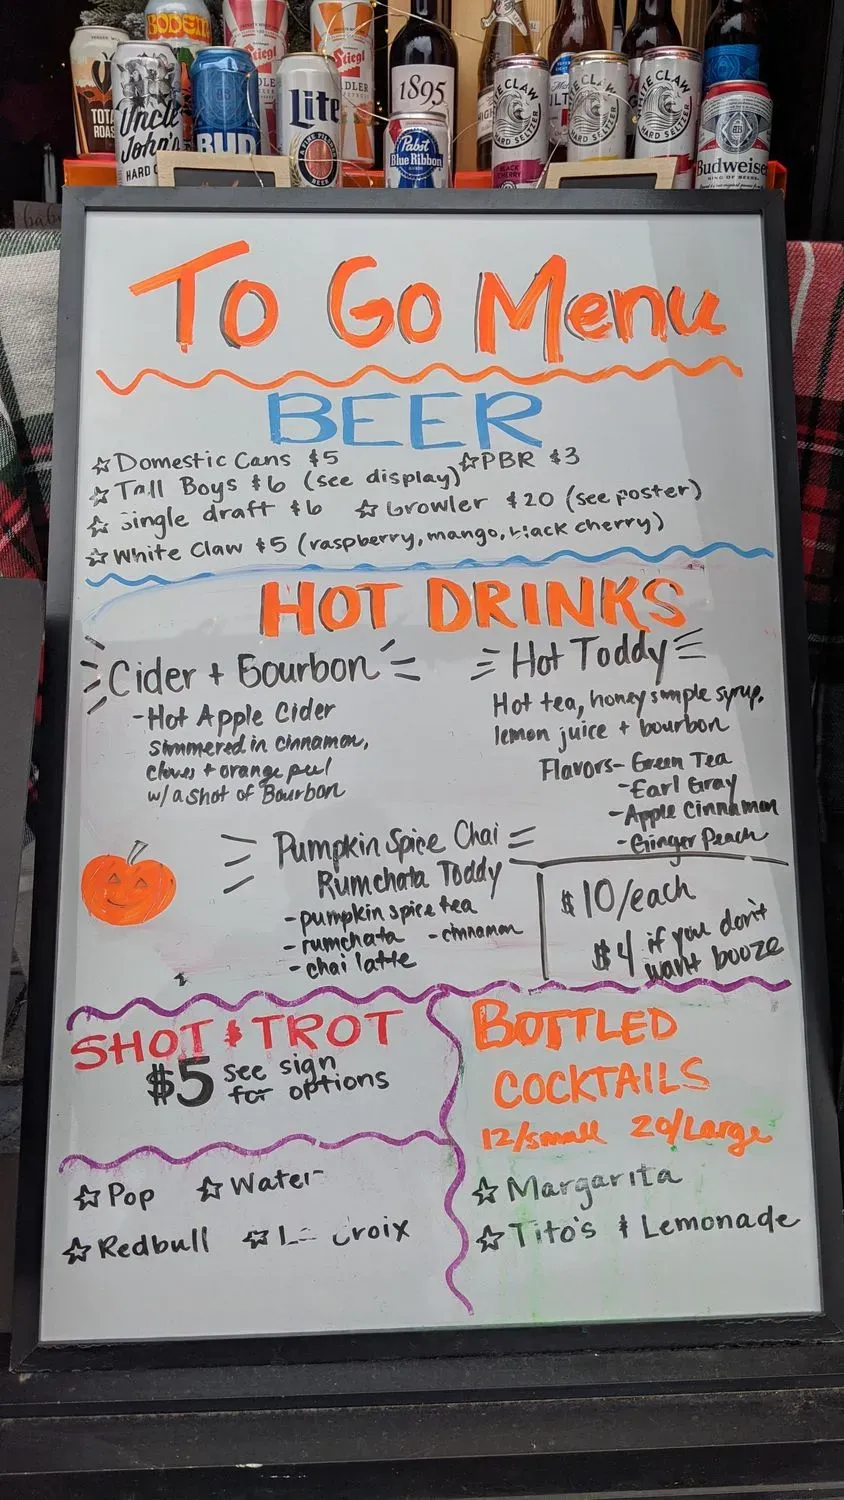 BODEM
Stiegl
Stiegl
Uncle
John's
HARD
BUD
Lite
A FINE PILSNER
BEER
1895
Pabst
Blue Ribbon
WHITE CLAW
HARD SELTZER
BLACK
CHERRY
WHITE CLAW
HARD SELTZER
WHITE CLAW
HARD SELTZER
Budweiser
KING OF BEERS
To Go Menu
BEER
☆ Domestic Cans $5 ☆ PBR $3
☆ Tall Boys $6 (see display)
☆ Single draft $6 ☆ Growler $20 (see poster)
☆ White Claw $5 (raspberry, mango, black cherry)
HOT DRINKS
Cider + Bourbon
- Hot Apple Cider
simmered in cinnamon,
cloves + orange peel
w/ a shot of Bourbon
Hot Toddy
Hot tea, honey simple syrup,
lemon juice + bourbon
Flavors - Green Tea
- Earl Gray
- Apple Cinnamon
- Ginger Peach
Pumpkin Spice Chai
Rumchata Toddy
- pumpkin spice tea
- rumchata - cinnamon
- chai latte
$10/each
$4 if you don't
want booze
SHOT & TROT
$5 see sign
for options
☆ Pop ☆ Water
☆ Redbull ☆ La Croix
BOTTLED
COCKTAILS
12/small 20/Large
☆ Margarita
☆ Tito's & Lemonade